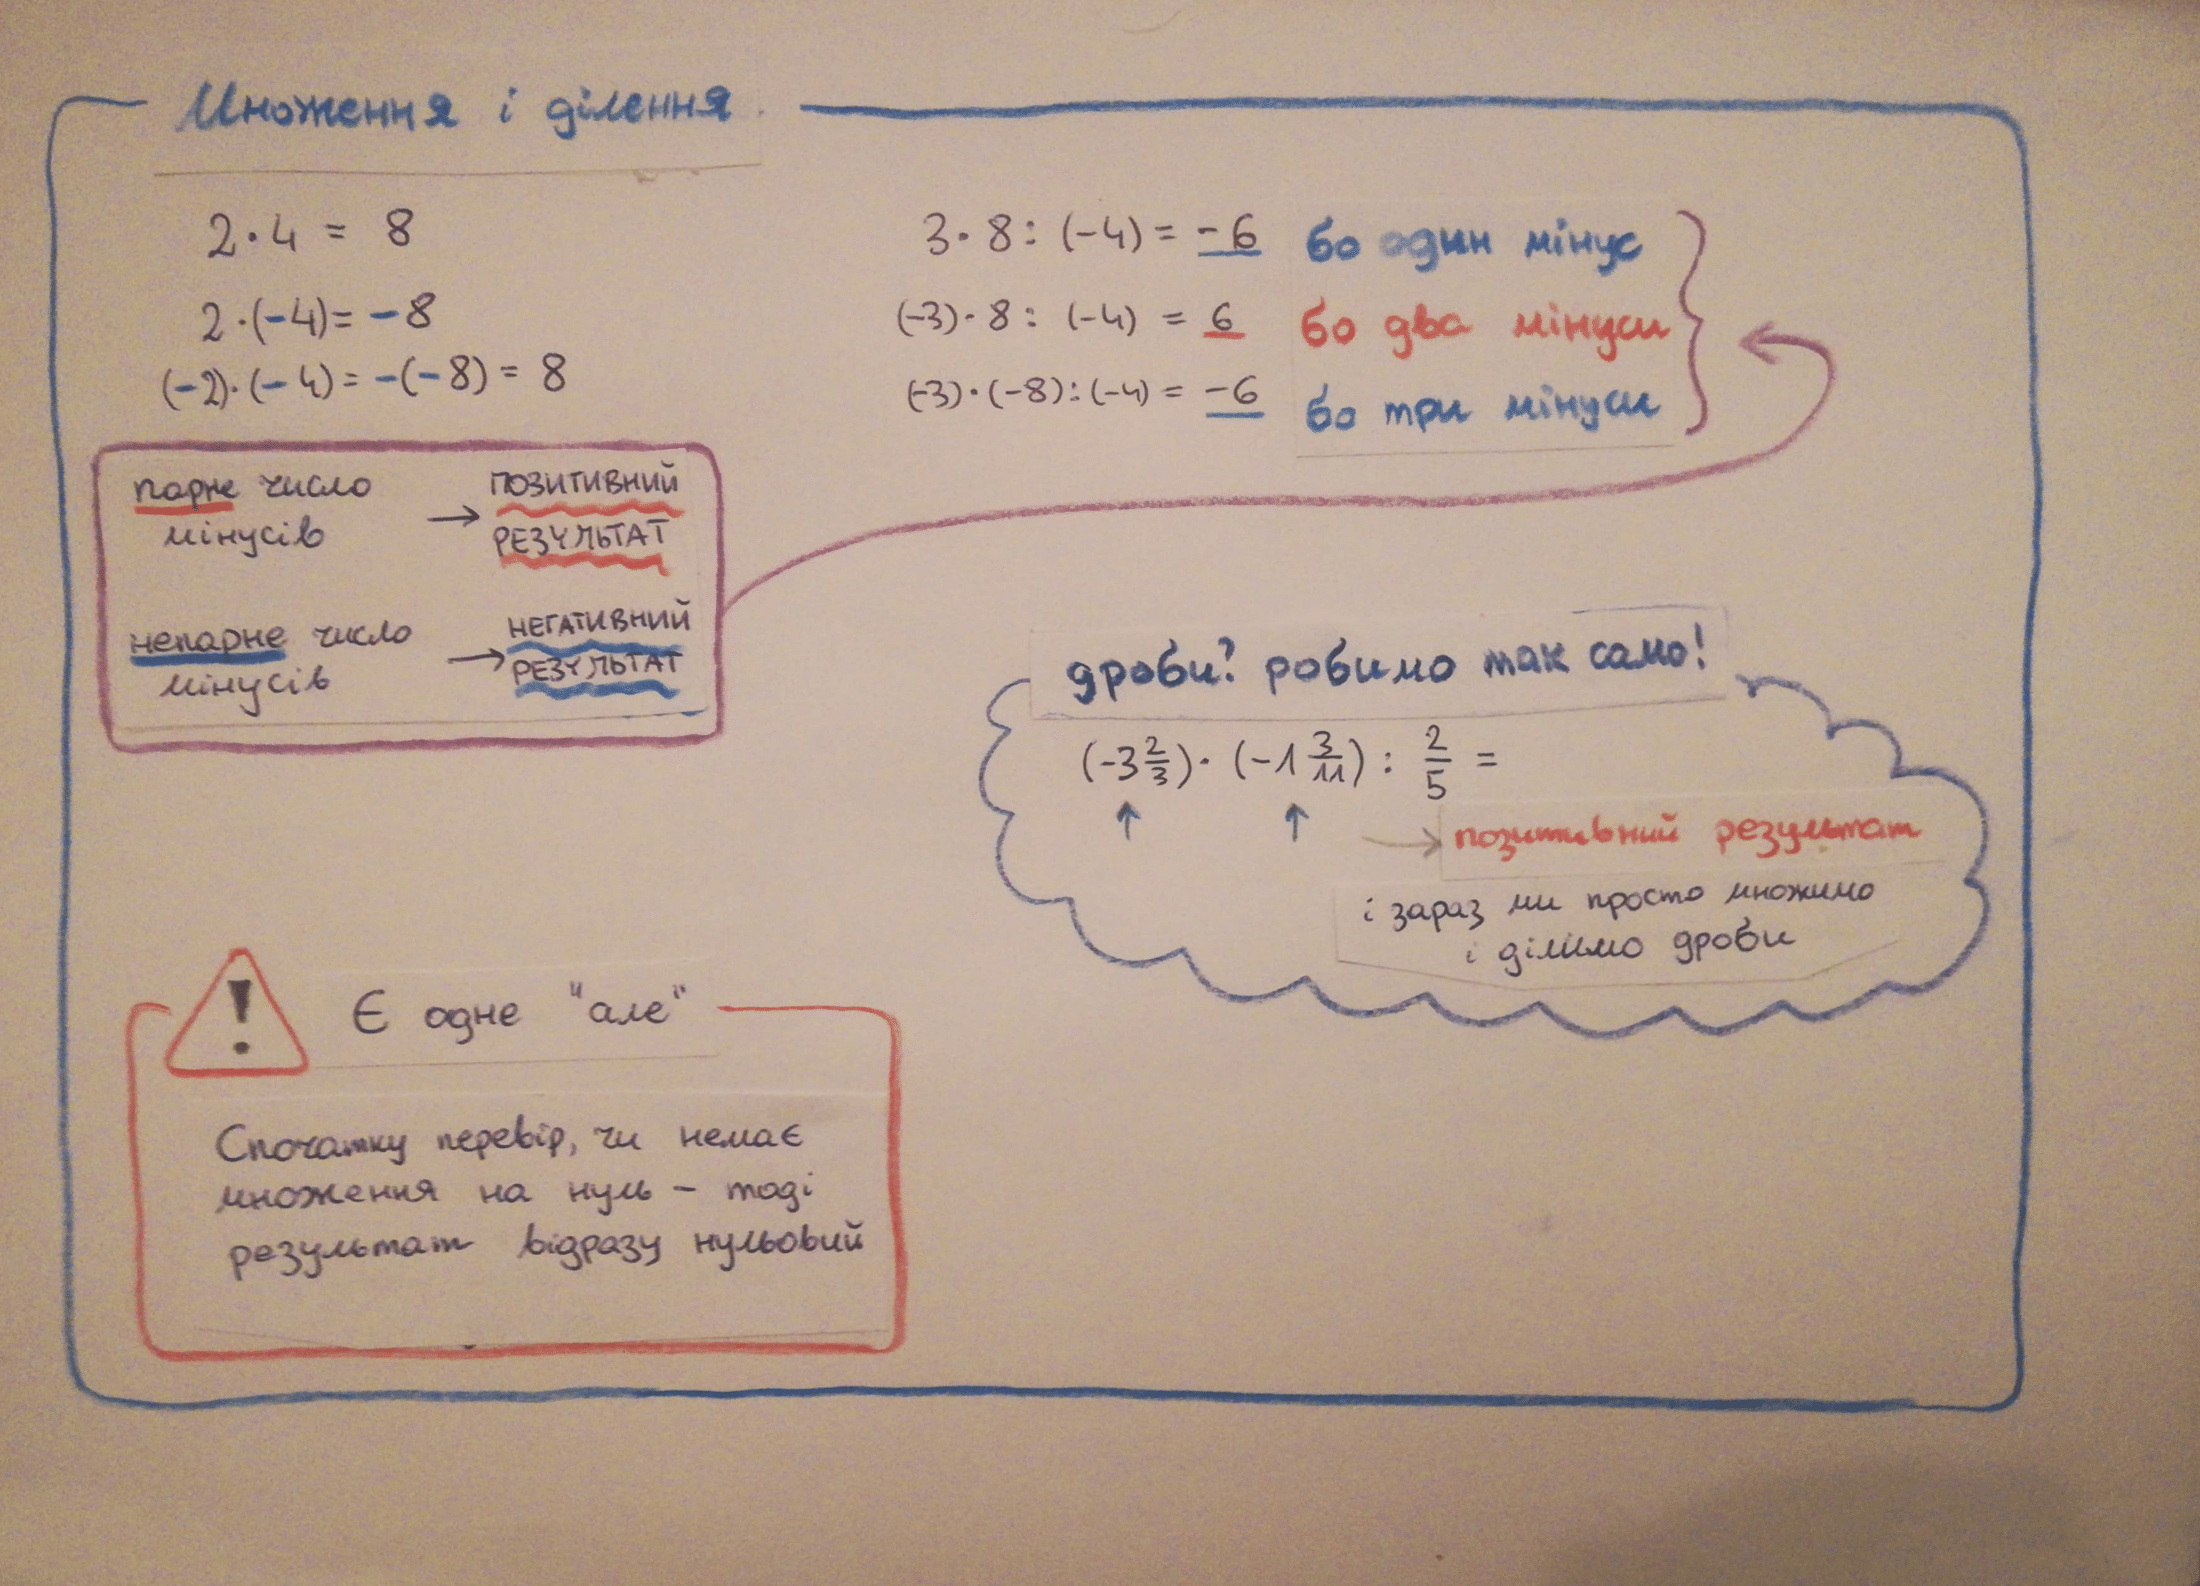 Множення і ділення
2·4 = 8
2·(-4)= -8
(-2)·(-4)= -(-8) = 8
3·8: (-4) = -6 бо один мінус
(-3)·8: (-4) = 6 бо два мінуси
(-3)·(-8):(-4) = -6 бо три мінуси
парне число
мінусів
→ ПОЗИТИВНИЙ
РЕЗУЛЬТАТ
непарне число
мінусів
→ НЕГАТИВНИЙ
РЕЗУЛЬТАТ
дроби? робимо так само!
(-3 2/3)·(-1 3/11) : 2/5 =
↑ ↑ → позитивний результат
і зараз ми просто множимо
і ділимо дроби
! Є одне "але"
Спочатку перевір, чи немає
множення на нуль – тоді
результат відразу нульовий